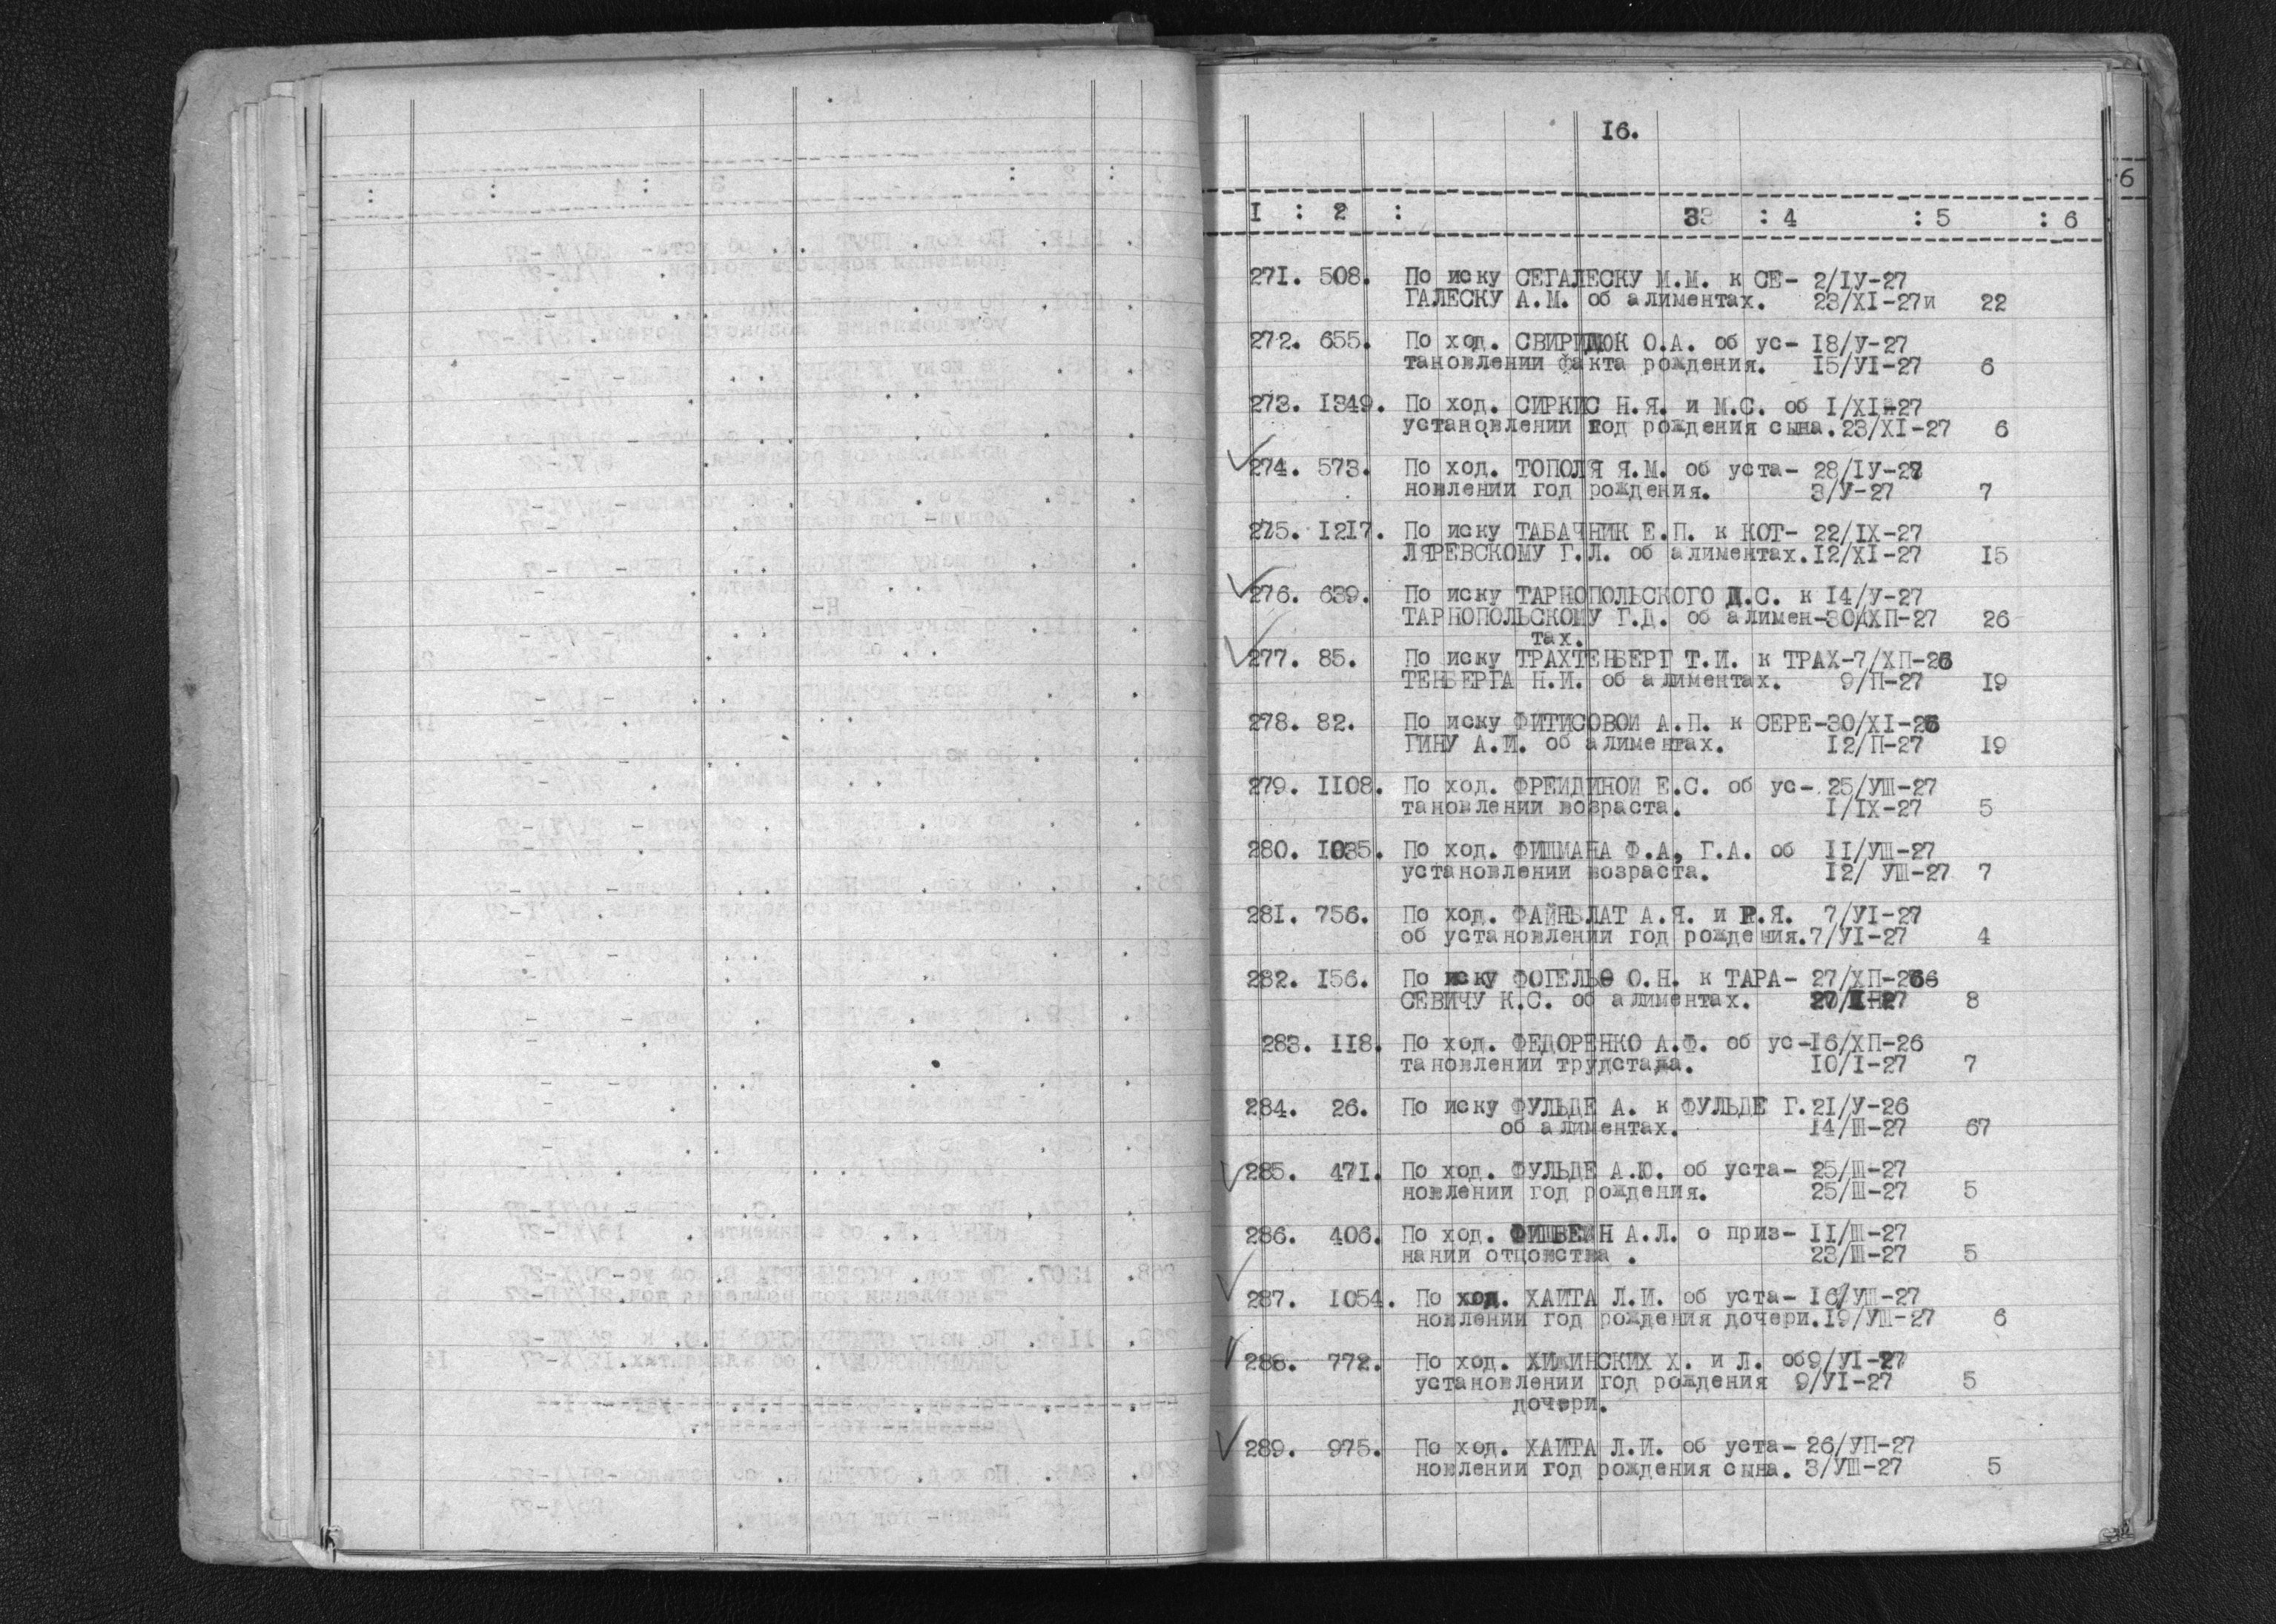 16.
6
I : 2 : 3 : 4 : 5 : 6
271. 508. По иску СЕГАЛЕСКУ М.М. к СЕ- 2/IУ-27
ГАЛЕСКУ А.М. об алиментах. 23/XI-27и 22
272. 655. По ход. СВИРИДЮК О.А. об ус- 18/У-27
тановлении факта рождения. 15/УI-27 6
273. 1349. По ход. СИРКИС Н.Я. и М.С. об I/XI-27
установлении год рождения сына. 23/XI-27 6
274. 573. По ход. ТОПОЛЯ Я.М. об уста- 28/IУ-27
новлении год рождения. 3/У-27 7
275. 1217. По иску ТАБАЧНИК Е.П. к КОТ- 22/IX-27
ЛЯРЕВСКОМУ Г.Л. об алиментах. 12/XI-27 15
276. 639. По иску ТАРНОПОЛЬСКОГО Д.С. к 14/У-27
ТАРНОПОЛЬСКОМУ Г.Д. об алимен-30/ХП-27 26
тах.
277. 85. По иску ТРАХТЕНБЕРГ Т.И. к ТРАХ-7/ХП-26
ТЕНБЕРГА Н.И. об алиментах. 9/П-27 19
278. 82. По иску ФИТИСОВОИ А.П. к СЕРЕ-30/XI-26
ГИНУ А.И. об алиментах. 12/П-27 19
279. 1108. По ход. ФРЕИДИНОИ Е.С. об ус- 25/УШ-27
тановлении возраста. I/IX-27 5
280. 1035. По ход. ФИШМАНА Ф.А, Г.А. об II/УШ-27
установлении возраста. 12/ УШ-27 7
281. 756. По ход. ФАЙНБЛАТ А.Я. и Р.Я. 7/УI-27
об установлении год рождения. 7/УI-27 4
282. 156. По иску ФОГЕЛЬ О.Н. к ТАРА- 27/ХП-26
СЕВИЧУ К.С. об алиментах. 8
283. 118. По ход. ФЕДОРЕНКО А.Ф. об ус-16/ХП-26
тановлении трудстажа. 10/I-27 7
284. 26. По иску ФУЛЬДЕ А. к ФУЛЬДЕ Г. 21/У-26
об алиментах. 14/Ш-27 67
285. 471. По ход. ФУЛЬДЕ А.Ю. об уста- 25/Ш-27
новлении год рождения. 25/Ш-27 5
286. 406. По ход. А.Л. о приз- II/Ш-27
нании отцовства . 23/Ш-27 5
287. 1054. По ход. ХАИТА Л.И. об уста- 16/УШ-27
новлении год рождения дочери. 19/УШ-27 6
288. 772. По ход. ХИЖИНСКИХ Х. и Л. об 9/УI-27
установлении год рождения 9/УI-27 5
дочери.
289. 975. По ход. ХАИТА Л.И. об уста- 26/УП-27
новлении год рождения сына. 3/УШ-27 5